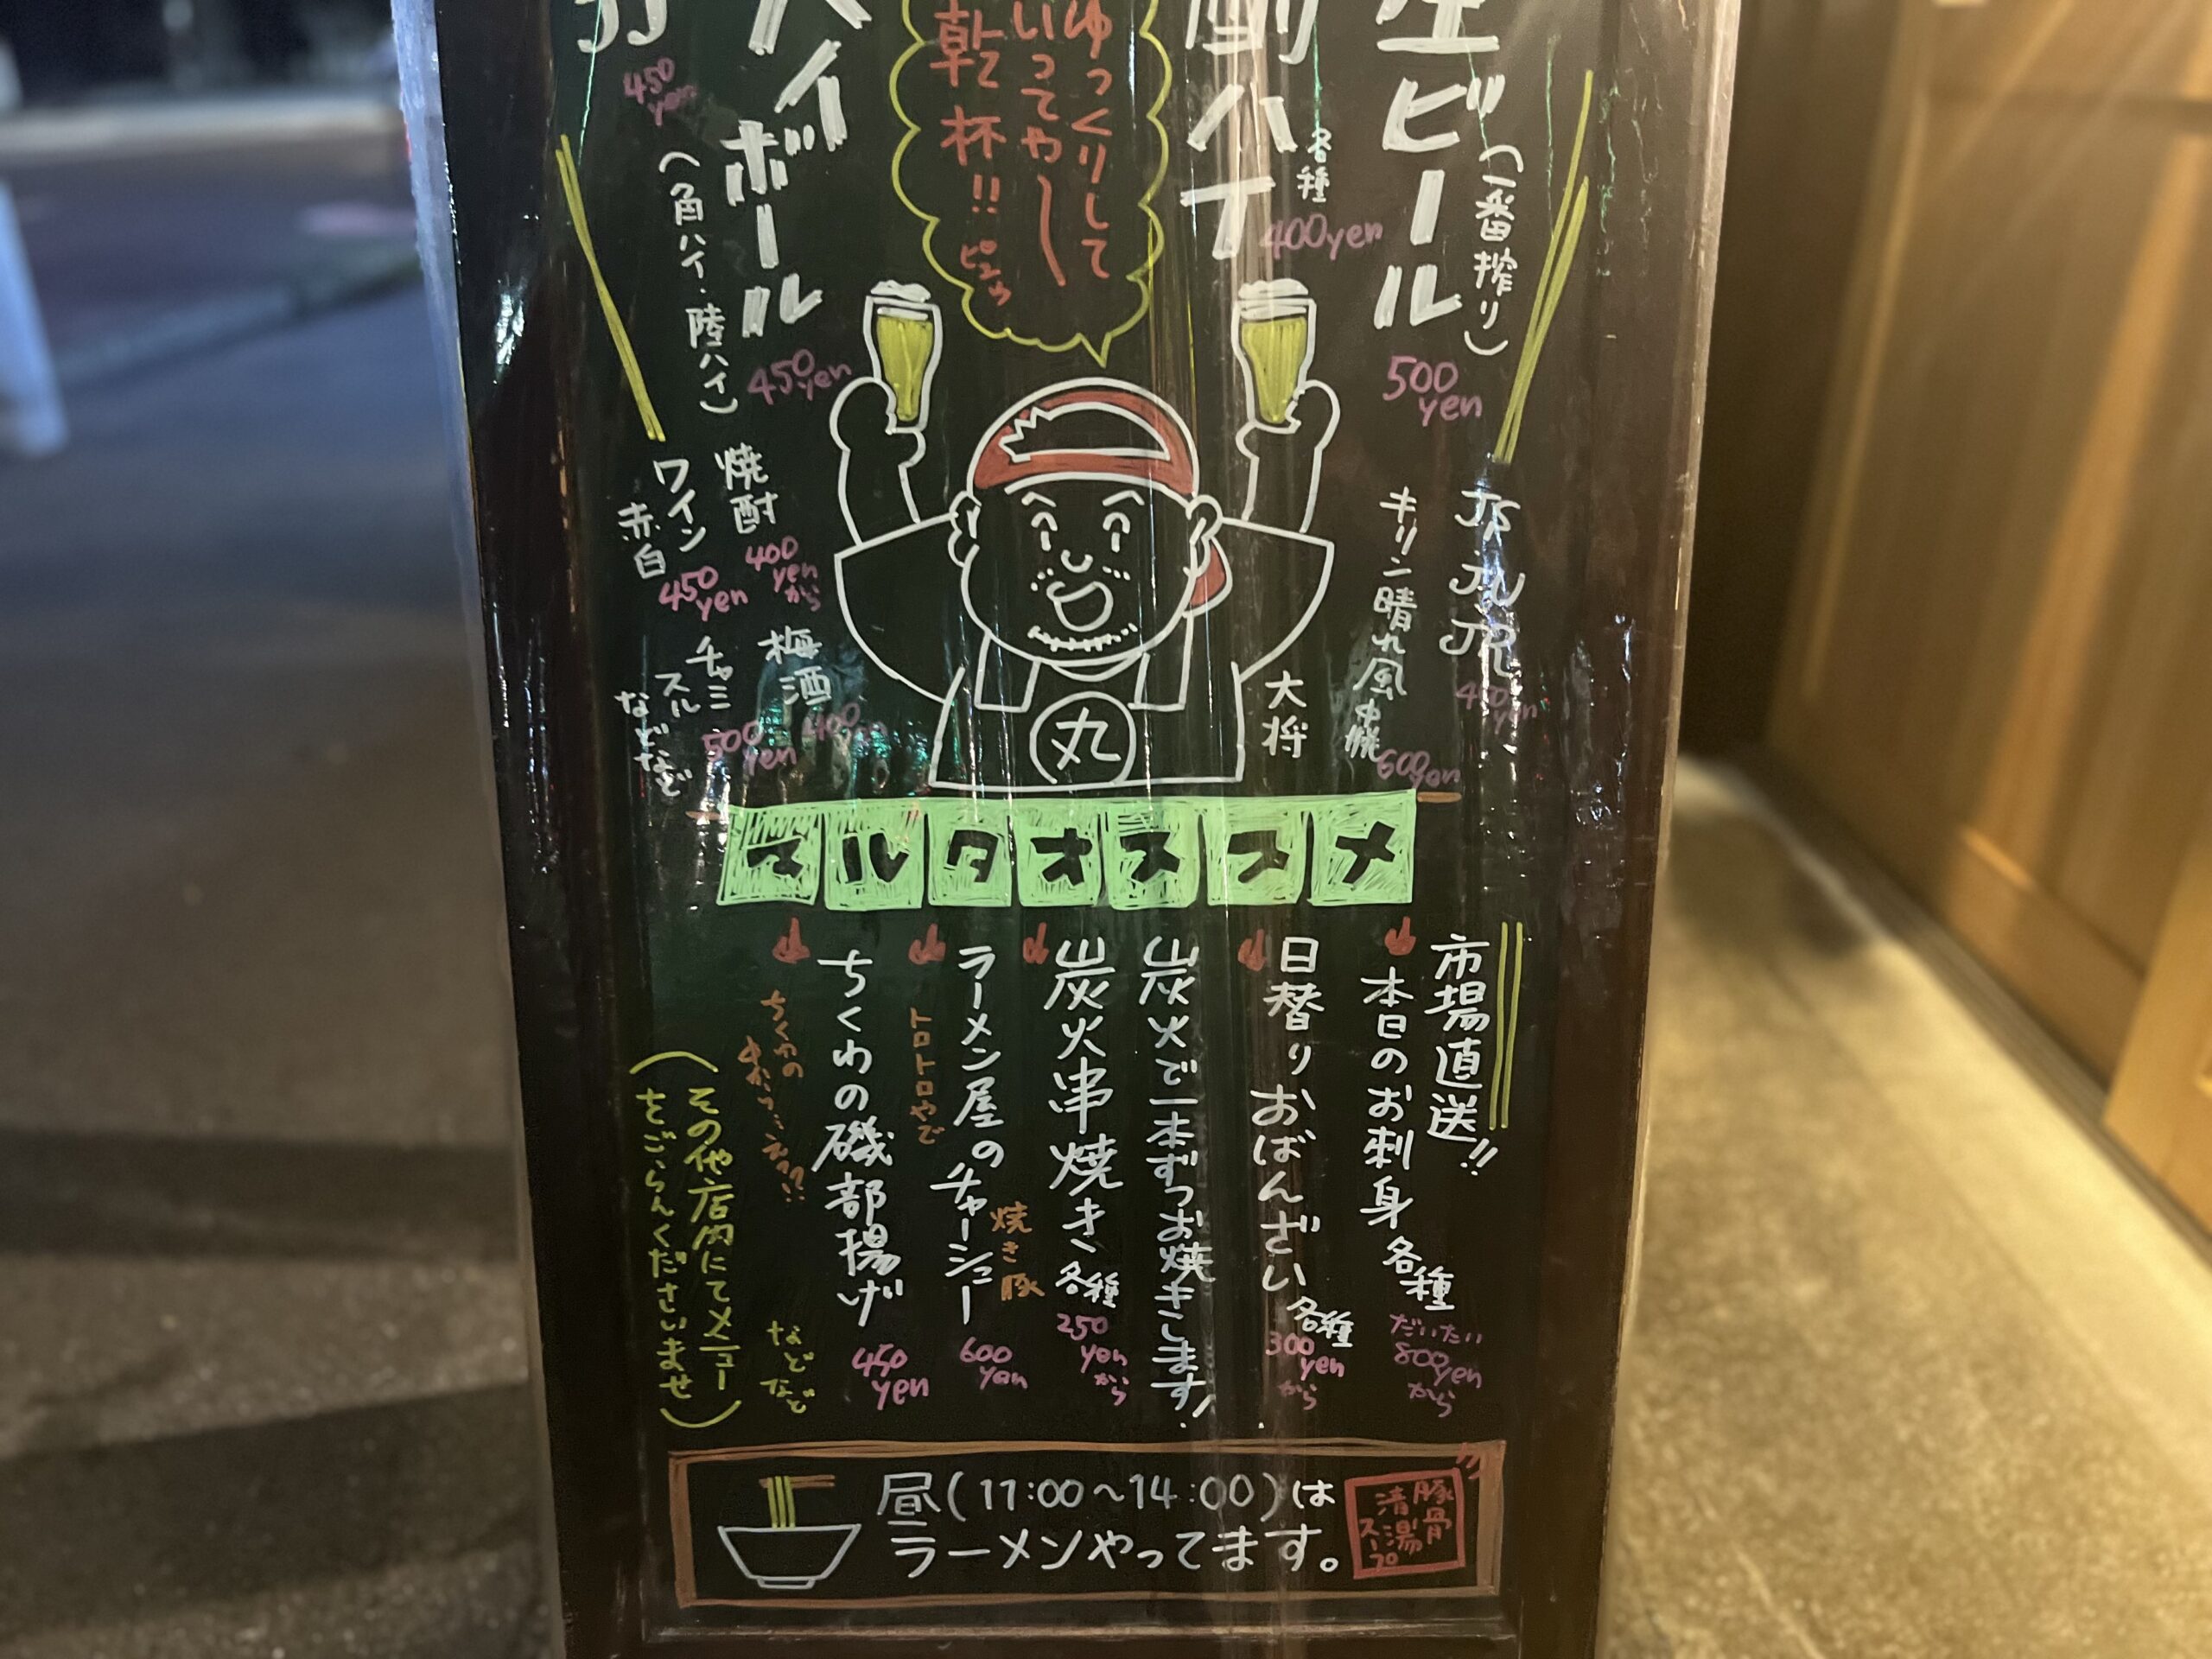 生ビール
(一番搾り)
500yen
酎ハイ
各種
400yen
ゆっくりして
いってやー
乾杯!!
ハイボール
(角ハイ・陸ハイ)
450yen
450yen
キリン晴れ風
600yen
大将
丸
焼酎
400yenから
ワイン
赤白
450yen
梅酒
400yen
チャミスル
500yen
などなど
マルタオススメ
市場直送!!
本日のお刺身
各種
だいたい
800yen
から
日替りおばんざい
各種
300yen
から
炭火で一本ずつお焼きします!
炭火串焼き
各種
250yen
から
ラーメン屋のチャーシュー
焼き豚
トロトロやで
600yen
ちくわの磯部揚げ
450yen
などなど
(その他店内にてメニュー
をごらんくださいませ)
昼(11:00~14:00)は
ラーメンやってます。
豚骨
清湯
スープ